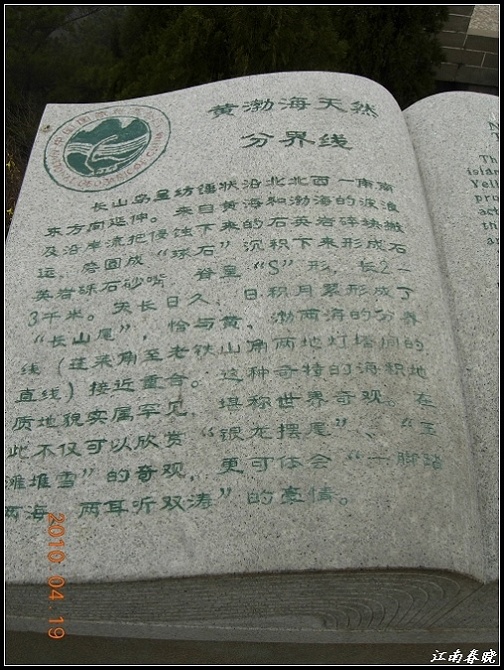 黄渤海天然
分界线
长山岛呈纺锤状沿北北西—南南
东方向延伸。来自黄海和渤海的波浪
及沿岸流把侵蚀下来的石英岩碎块搬
运、磨圆成“球石”沉积下来形成石
英岩砾石砂嘴，脊呈“S”形，长2—
3千米。天长日久，日积月累形成了
“长山尾”，恰与黄、渤两海的分界
线（蓬莱角至老铁山角两地灯塔间的
直线）接近重合。这种奇特的海积地
质地貌实属罕见，堪称世界奇观。在
此不仅可以欣赏“银龙摆尾”、“玉
滩堆雪”的奇观，更可体会“一脚踏
两海，两耳听双涛”的豪情。
Th
islan
Yell
pro
act
th
a
2010.04.19
江南春晓